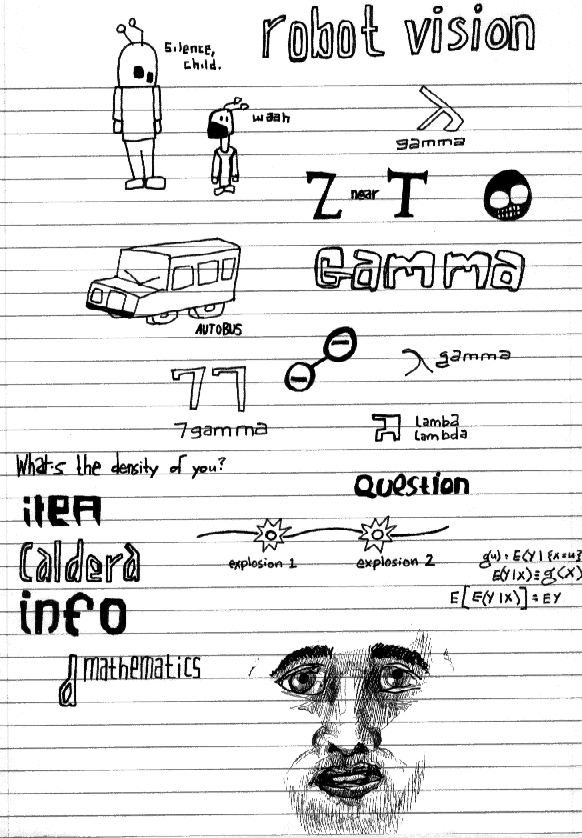 robot vision
Silence,
child.
waah
gamma
Z near T
Gamma
AUTOBUS
gamma
77
7gamma
Lamba
Lambda
What's the density of you?
Question
itea
Caldera
info
explosion 1
explosion 2
g(u) = E(Y | {X=u})
E(Y|X) = g(X)
E[E(Y|X)] = EY
d mathematics